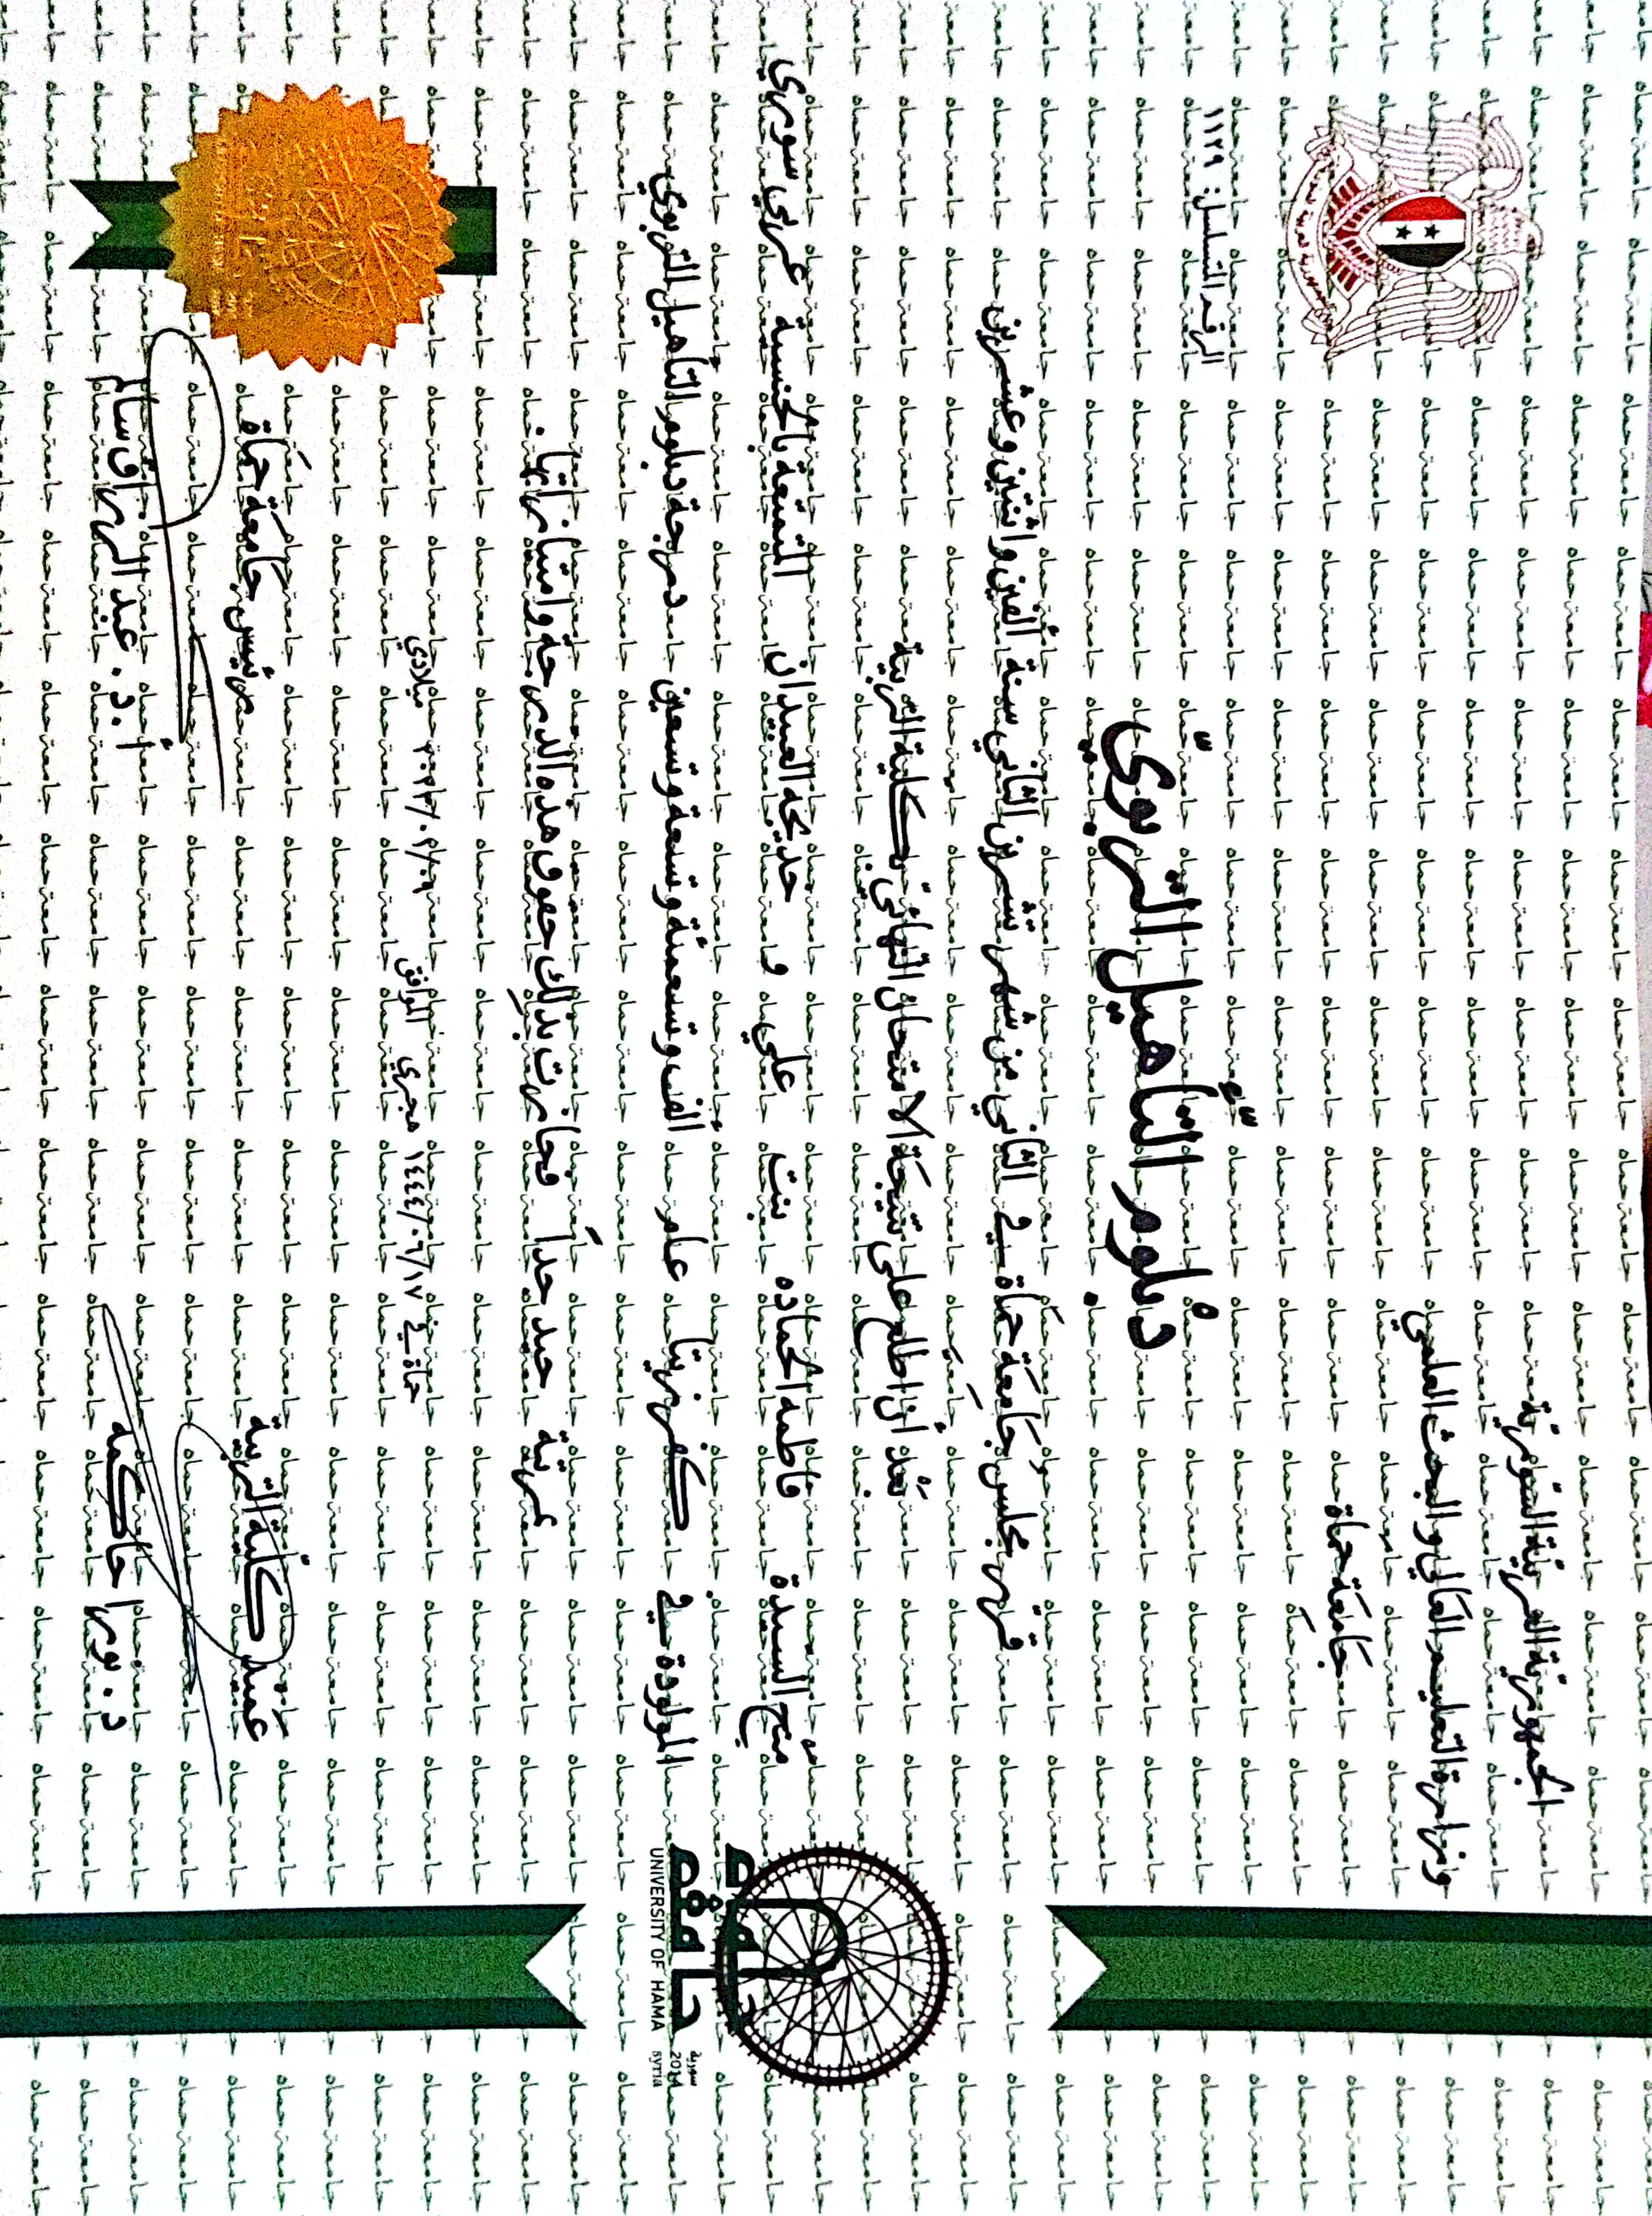 الجمهورية العربية السورية
وزارة التعليم العالي والبحث العلمي
جامعة حماة
الرقم المتسلسل: ١١٢٩
دبلوم التأهيل التربوي
قرر مجلس جامعة حماة في الثاني من شهر تشرين الثاني سنة ألفين واثنتين وعشرين
بعد أن اطلع على نتيجة الامتحان النهائي بكلية التربية
منح السيدة فاطمه الحماده بنت علي و خديجه العبيدان المتمتعة بالجنسية عربي سوري
المولودة في كفرزيتا عام ألف وتسعمئة وتسعة وتسعين درجة دبلوم التأهيل التربوي
بمرتبة جيد جداً فحازت بذلك حقوق هذه الدرجة وامتيازاتها.
حماة في ١٤٤٤/٠٦/١٧ هجري الموافق ٢٠٢٣/٠٢/٠٩ ميلادي
عميد كلية التربية
رئيس جامعة حماة
د. نورا حاكمه
أ.د. عبد الرزاق سالم
جامعة حماة
UNIVERSITY OF HAMA
سورية
2014
syria